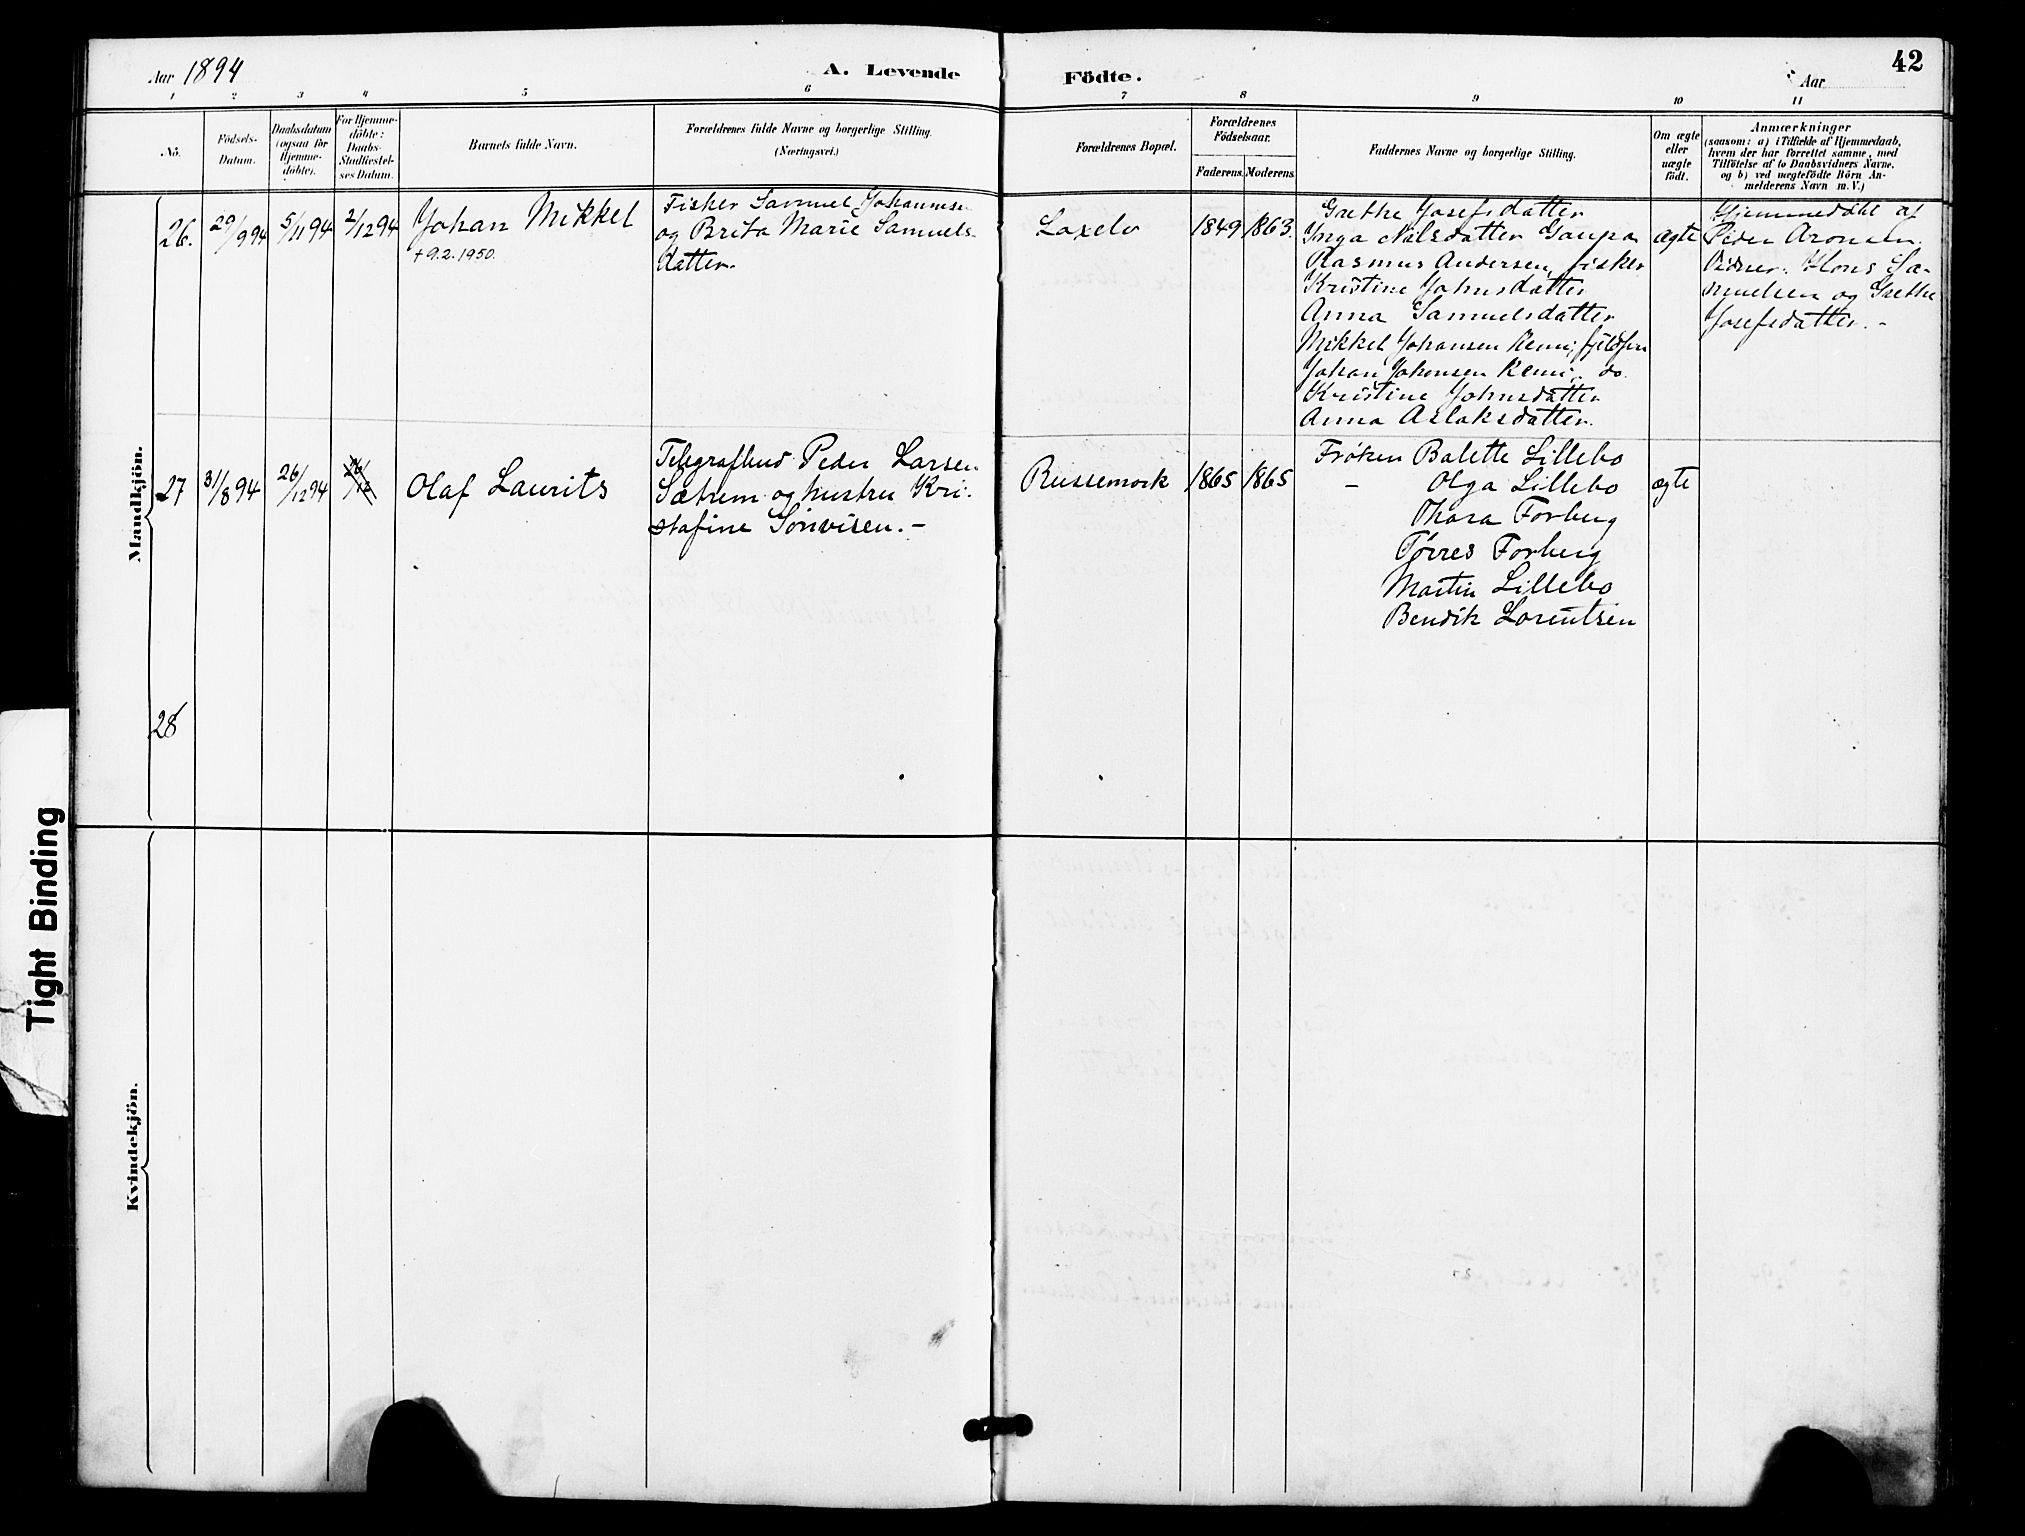 Aar 1894
A. Levende
Födte.
Aar
42
1 2 3 4 5 6 7 8 9 10 11
No.
Födsels-
Datum.
Daabsdatum
(ogsaa for
Hjemme-
döbte).
For Hjemme-
döbte:
Daabs-
Stadfæstel-
ses Datum.
Barnets fulde Navn.
Forældrenes fulde Navne og borgerlige Stilling.
(Næringsvei.)
Forældrenes Bopæl.
Forældrenes
Födselsaar.
Faderens. Moderens.
Faddernes Navne og borgerlige Stilling.
Om ægte
eller
uægte
födt.
Anmærkninger
(saasom: a) i Tilfælde af Hjemmedaab,
hvem der har forrettet samme, med
Tilföielse af to Daabsvidners Navne,
og b) ved uægtefödte Börn An-
melderens Navn m. V.)
Mandkjön.
26.
29/9 94
5/11 94
2/12 94
Johan Mikkel
+ 9.2.1950.
Fisker Samuel Johannese
og Brita Marie Samuels-
datter.
Laxelv
1849
1863.
Grethe Josefsdatter
Inga Nilsdatter Gaupa
Rasmus Andersen, fisker
Kristine Johnsdatter
Anna Samuelsdatter
Mikkel Johansen Kemi, fjeldfin
Johan Johansen Kemi, do.
Kristine Johnsdatter
Anna Aslaksdatter.
ægte
Hjemmedøbt af
Peder Aronsen.
Vidner: Hans Sa-
muelsen og Grethe
Josefsdatter. -
27
31/8 94
26/12 94
26/12
Olaf Laurits
Telegrafbud Peder Larsen
Sætrem og hustru Kri-
stafine Sønvisen. -
Russemark
1865
1865
Frøken Balette Lillebo
- Olga Lillebo
Thora Forberg
Tørres Forberg
Martin Lillebo
Bendik Lorentsen
ægte
28
Kvindekjön.
Tight Binding